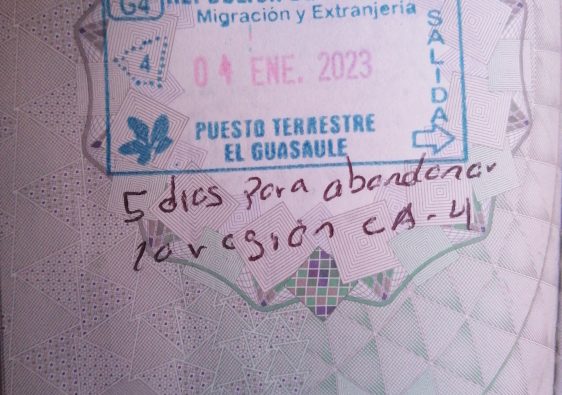 G4
Migración y Extranjería
SALIDA
4
04 ENE. 2023
PUESTO TERRESTRE
EL GUASAULE
5 dias para abandonar
la region CA-4